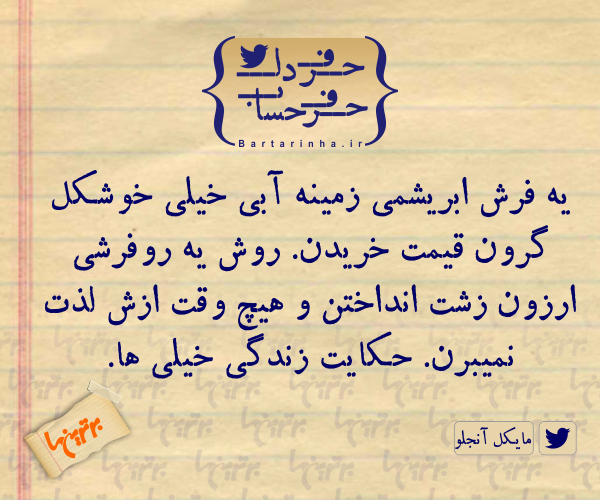 حرف دل
حرف حساب
Bartarinha.ir
یه فرش ابریشمی زمینه آبی خیلی خوشکل
گرون قیمت خریدن. روش یه روفرشی
ارزون زشت انداختن و هیچ وقت ازش لذت
نمیبرن. حکایت زندگی خیلی ها.
برترین‌ها
مایکل آنجلو